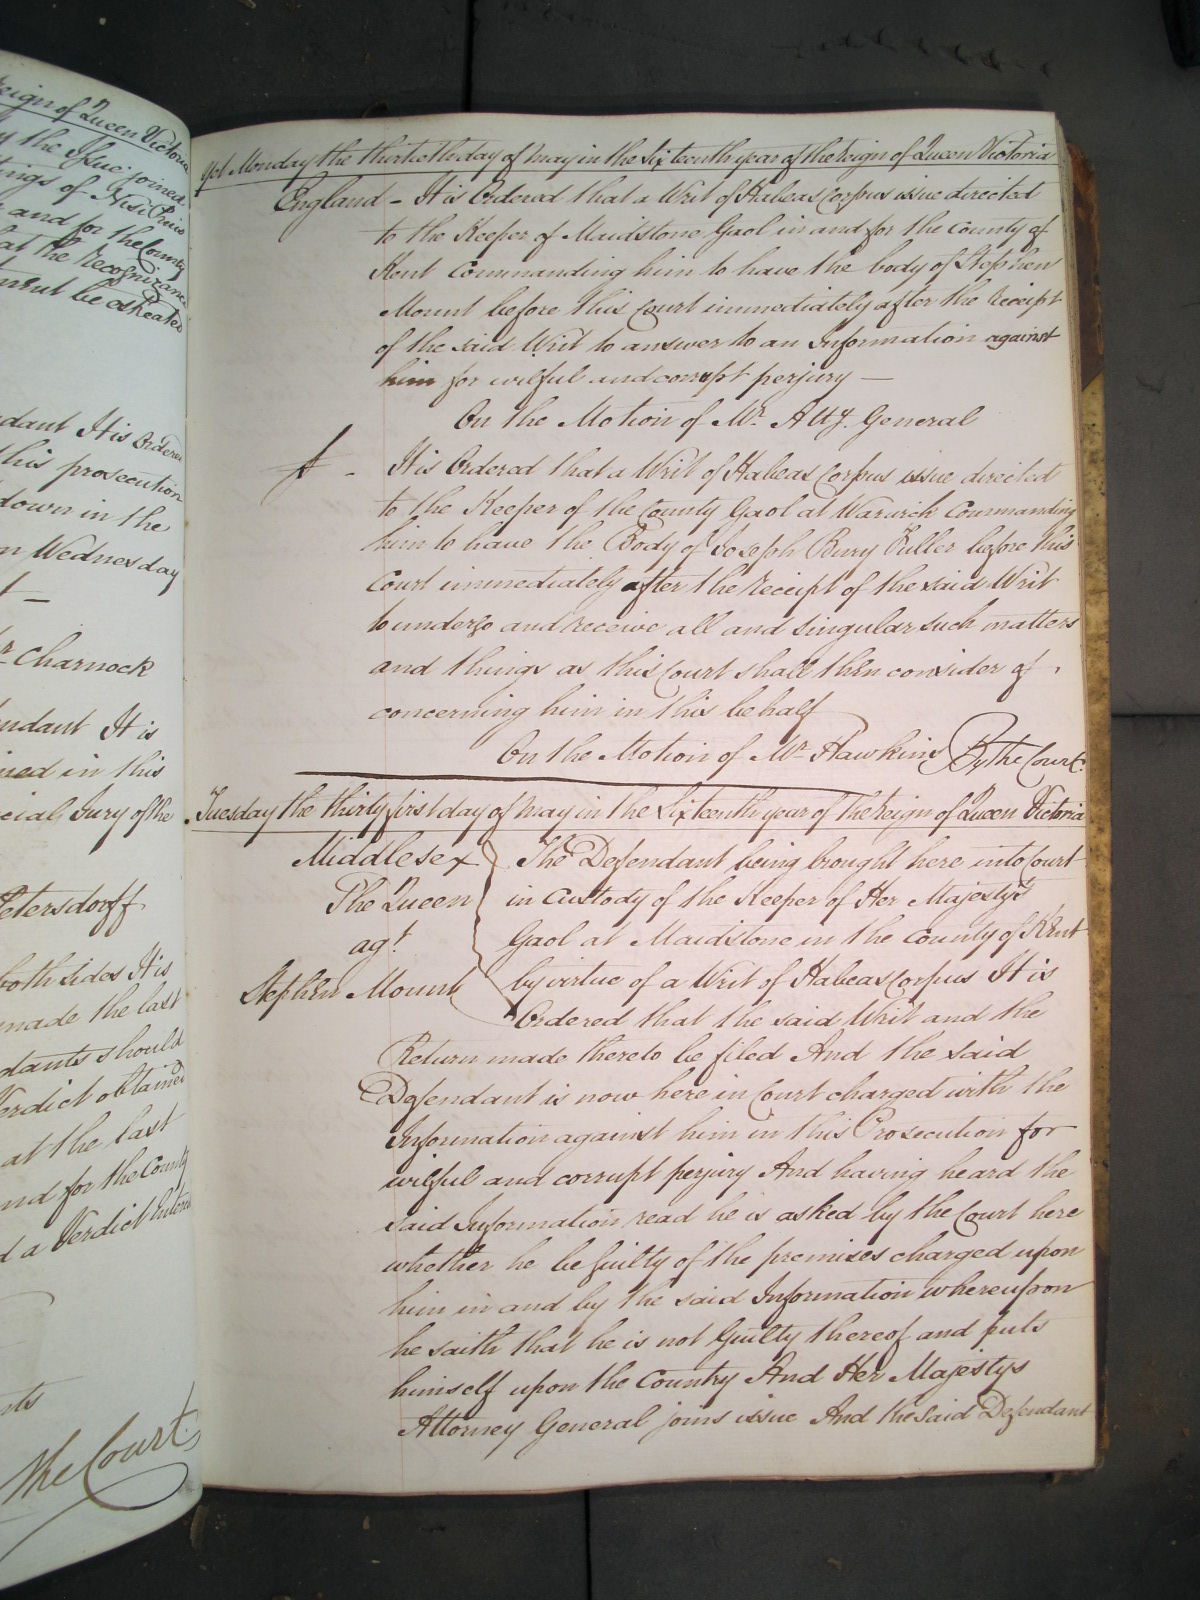 reign of Queen Victoria
the Issue joined
tings of Nisi Prius
and for the County
at the Recognizance
be estreated
dant It is Ordered
this prosecution
down in the
on Wednesday
Charnock
ndant It is
in this
cial Jury of the
Petersdorff
both sides It is
made the last
dants should
Verdict obtained
at the last
nd for the County
d a Verdict entered
the Court
Yet Monday the thirtieth day of May in the Sixteenth year of the Reign of Queen Victoria
England - It is Ordered that a Writ of Habeas Corpus issue directed
to the Keeper of Maidstone Gaol in and for the County of
Kent Commanding him to have the body of Stephen
Mount before this Court immediately after the receipt
of the said Writ to answer to an Information against
him for wilful and corrupt perjury —
On the Motion of Mr. Atty. General
It is Ordered that a Writ of Habeas Corpus issue directed
to the Keeper of the County Gaol at Warwick Commanding
him to have the Body of Joseph Bury Fuller before this
Court immediately after the receipt of the said Writ
to undergo and receive all and singular such matters
and things as this Court shall then consider of
concerning him in this behalf
On the Motion of Mr Hawkins By the Court.
Tuesday the thirty first day of May in the Sixteenth year of the Reign of Queen Victoria
Middlesex The Defendant being brought here into Court
The Queen in Custody of the Keeper of Her Majesty's
agt. Gaol at Maidstone in the County of Kent
Stephen Mount by virtue of a Writ of Habeas Corpus It is
Ordered that the said Writ and the
Return made thereto be filed And the said
Defendant is now here in Court charged with the
Information against him in this Prosecution for
wilful and corrupt perjury And having heard the
said Information read he is asked by the Court here
whether he be guilty of the premises charged upon
him in and by the said Information whereupon
he saith that he is not Guilty thereof and puts
himself upon the Country And Her Majestys
Attorney General joins issue And the said Defendant